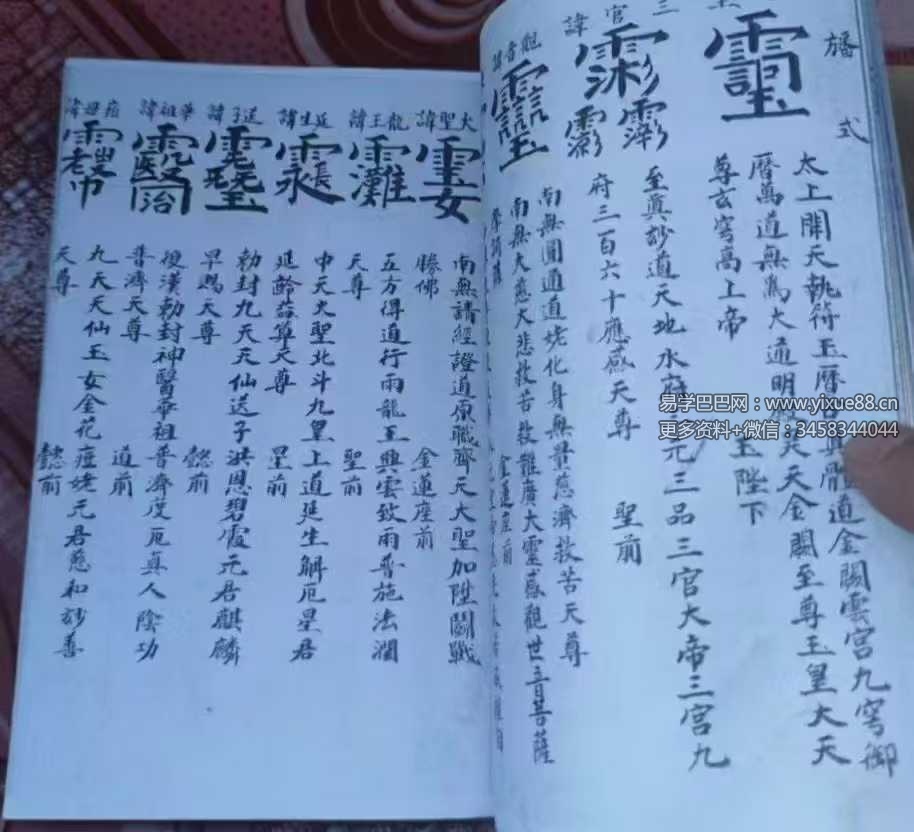 旛式
太上開天執符玉曆含真體道金闕雲宮九穹御
曆萬道無為大道明殿昊天金闕至尊玉皇大天
尊玄穹高上帝 玉陛下
三官諱
至真玅道天地水府三元三品三官大帝三宮九
府三百六十應感天尊 聖前
觀音諱
南無圓通道姥化身無量慈濟救苦天尊
南無大慈大悲救苦救難廣大靈感觀世音菩薩
金蓮座前
大聖諱
南無請經證道原職齊天大聖加陞鬪戰
勝佛 金蓮座前
龍王諱
五方得道行雨龍王興雲致雨普施法潤
天尊 聖前
延生諱
中天大聖北斗九皇上道延生解厄星君
延齡益算天尊 星前
送子諱
勅封九天天仙送子洪恩碧霞元君麒麟
早賜天尊 懿前
華祖諱
後漢勅封神醫華祖普濟度厄真人陰功
普濟天尊 道前
痘母諱
九天天仙玉女金花痘姥元君慈和玅善
天尊 懿前
易学巴巴网：www.yixue88.cn
更多资料+微信：3458344044